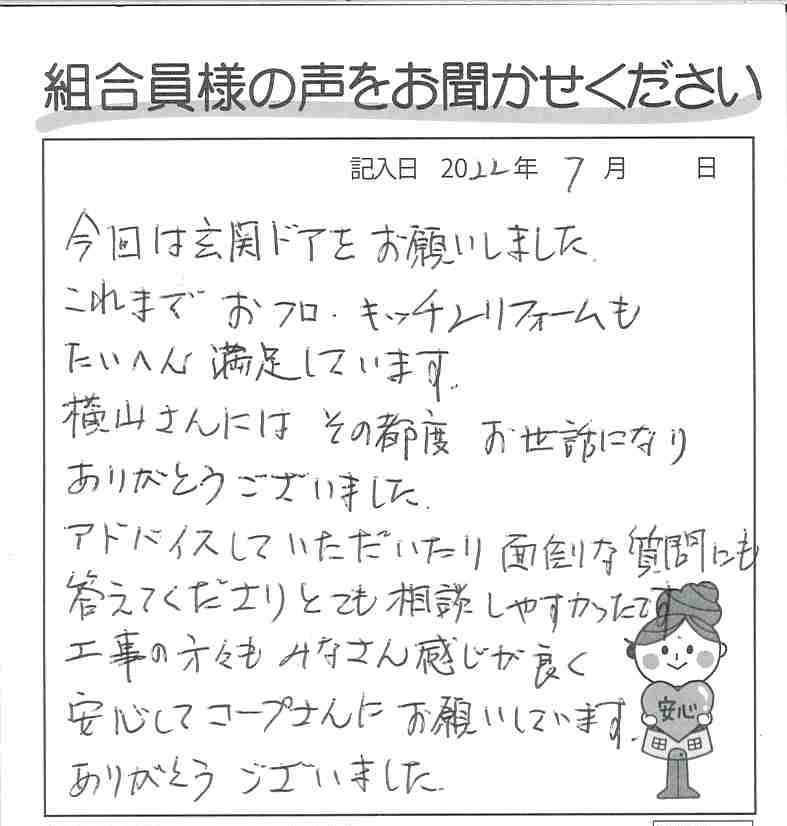 組合員様の声をお聞かせください
記入日 2022年 7月 日
今回は玄関ドアをお願いしました.
これまで おフロ・キッチンリフォームも
たいへん 満足しています.
横山さんには その都度 お世話になり
ありがとうございました.
アドバイスしていただいたり 面倒な質問にも
答えてくださりとても相談しやすかったです
工事の方々も みなさん感じが良く
安心してコープさんに お願いしています.
ありがとう ございました.
安心